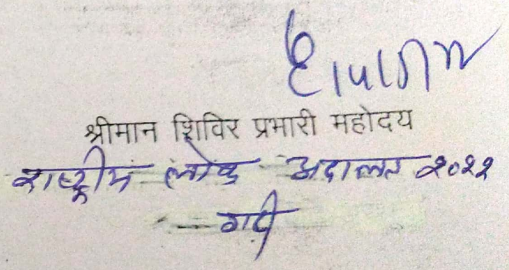 श्रीमान शिविर प्रभारी महोदय
राष्ट्रीय लोक अदालत २०२२